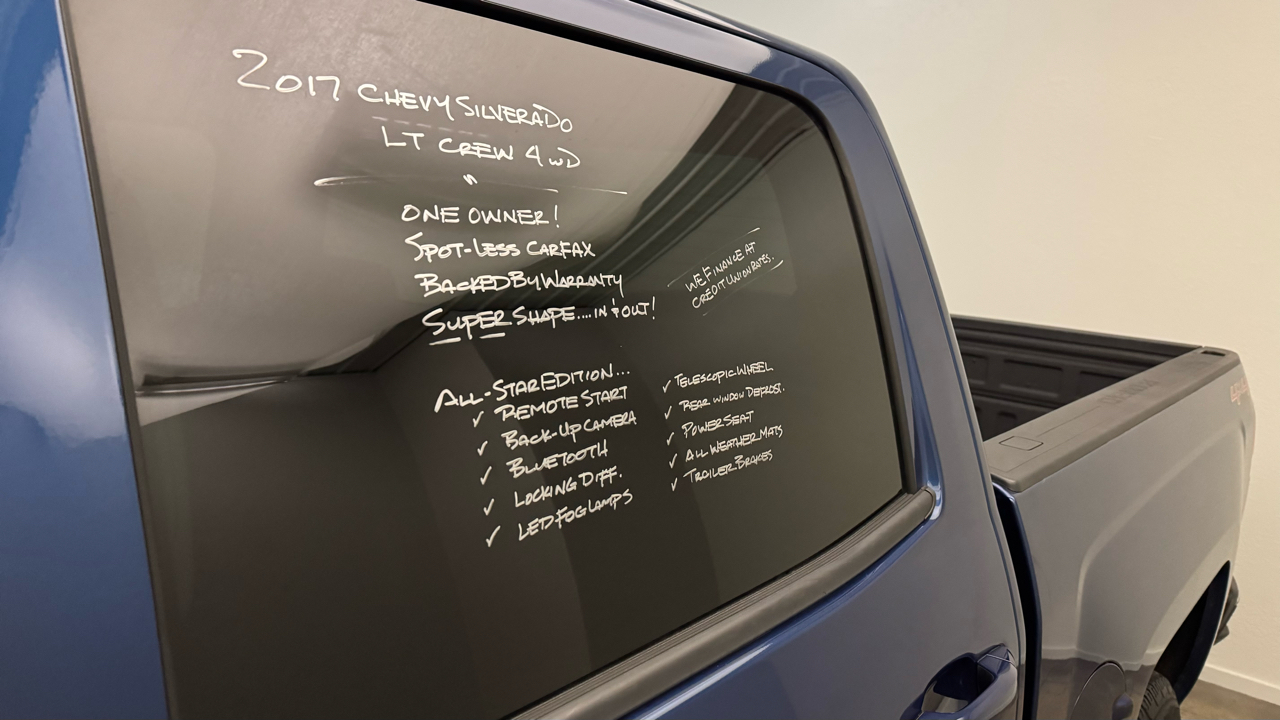 2017 CHEVY SILVERADO
LT CREW 4WD
ONE OWNER!
SPOT-LESS CARFAX
BACKED BY WARRANTY
SUPER SHAPE....IN & OUT!
WE FINANCE AT
CREDIT UNION RATES.
ALL-STAR EDITION...
✓ REMOTE START
✓ BACK-UP CAMERA
✓ BLUETOOTH
✓ LOCKING DIFF.
✓ LED FOG LAMPS
✓ TELESCOPIC WHEEL
✓ REAR WINDOW DEFROST.
✓ POWER SEAT
✓ ALL WEATHER MATS
✓ TRAILER BRAKES